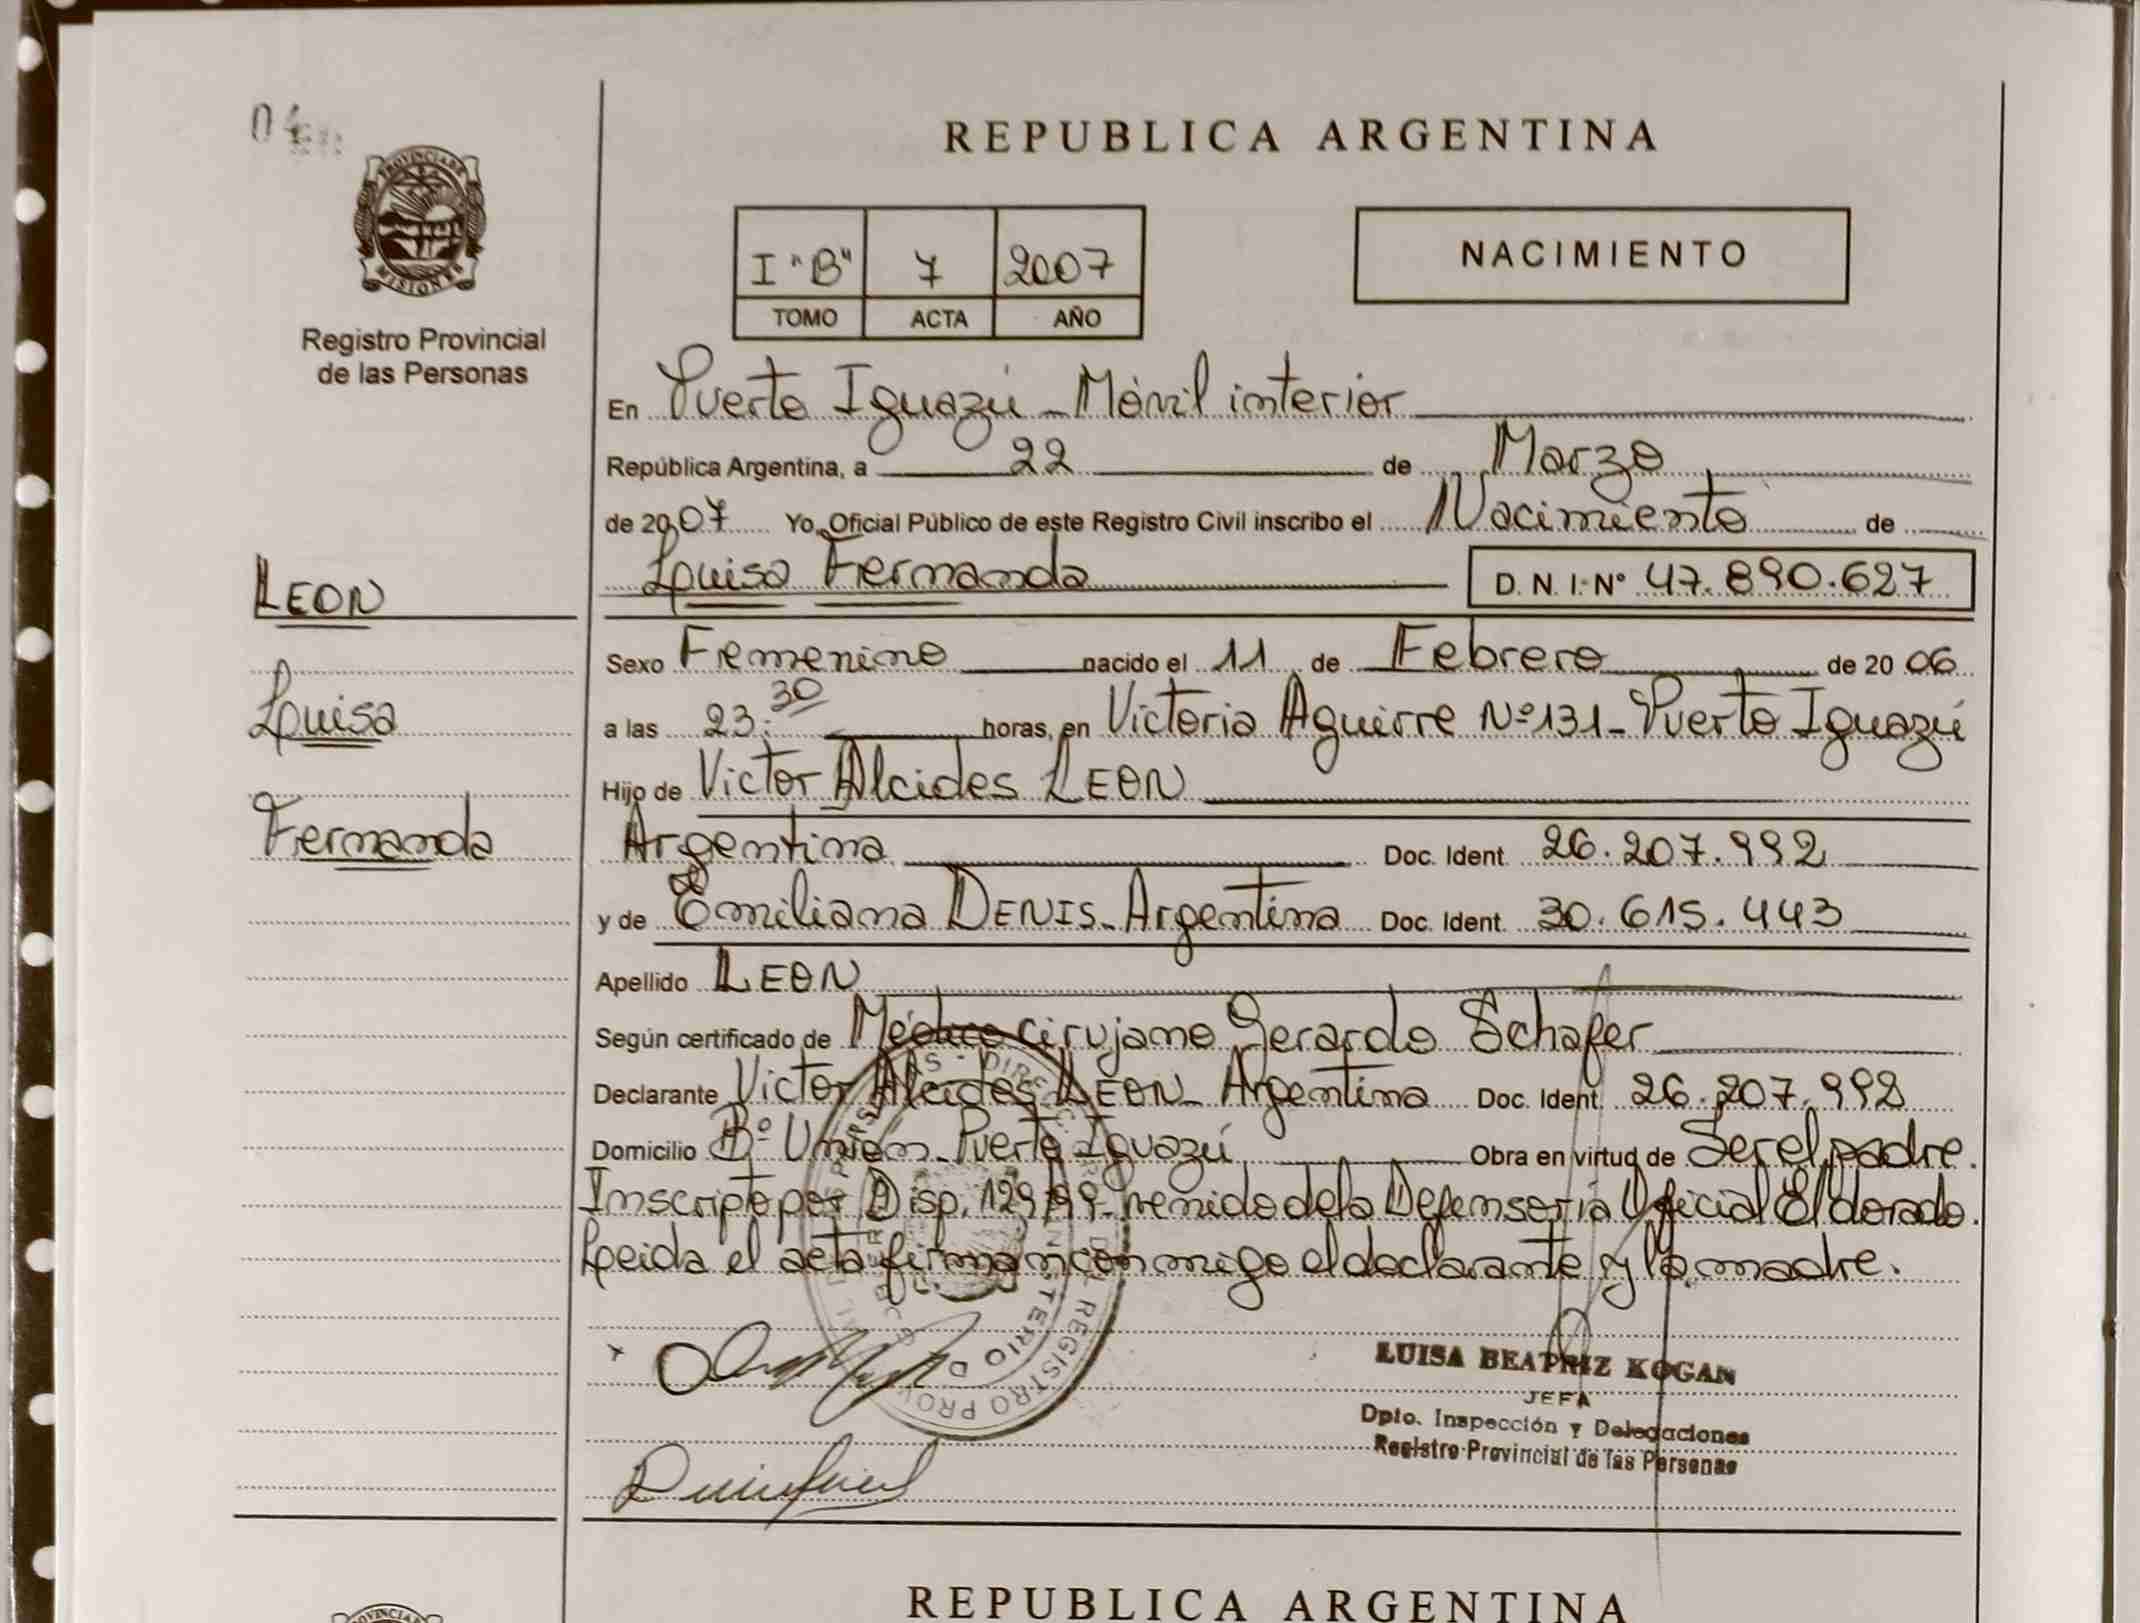 04
PROVINCIA DE
MISIONES
Registro Provincial
de las Personas
LEON
Luisa
Fernanda
REPUBLICA ARGENTINA
I "B" 7 2007
TOMO ACTA AÑO
NACIMIENTO
En Puerto Iguazú - Móvil interior
República Argentina, a 22 de Marzo
de 2007 Yo, Oficial Público de este Registro Civil inscribo el Nacimiento de
Luisa Fernanda D. N. I. Nº 47.890.627
Sexo Femenino nacido el 11 de Febrero de 2006
a las 23:30 horas, en Victoria Aguirre Nº 131 - Puerto Iguazú
Hijo de Victor Alcides LEON
Argentina Doc. Ident. 26.207.992
y de Emiliana DENIS - Argentina Doc. Ident. 30.615.443
Apellido LEON
Según certificado de Médico cirujano Gerardo Schafer
Declarante Victor Alcides LEON - Argentina Doc. Ident. 26.207.992
Domicilio Bº Unión - Puerto Iguazú Obra en virtud de Ser el padre.
Inscripto por Disp. 129/99 - remido de la Defensoría Oficial Eldorado.
Leida el acta firman conmigo el declarante y la madre.
LUISA BEATRIZ KOGAN
JEFA
Dpto. Inspección y Delegaciones
Registro Provincial de las Personas
REPUBLICA ARGENTINA